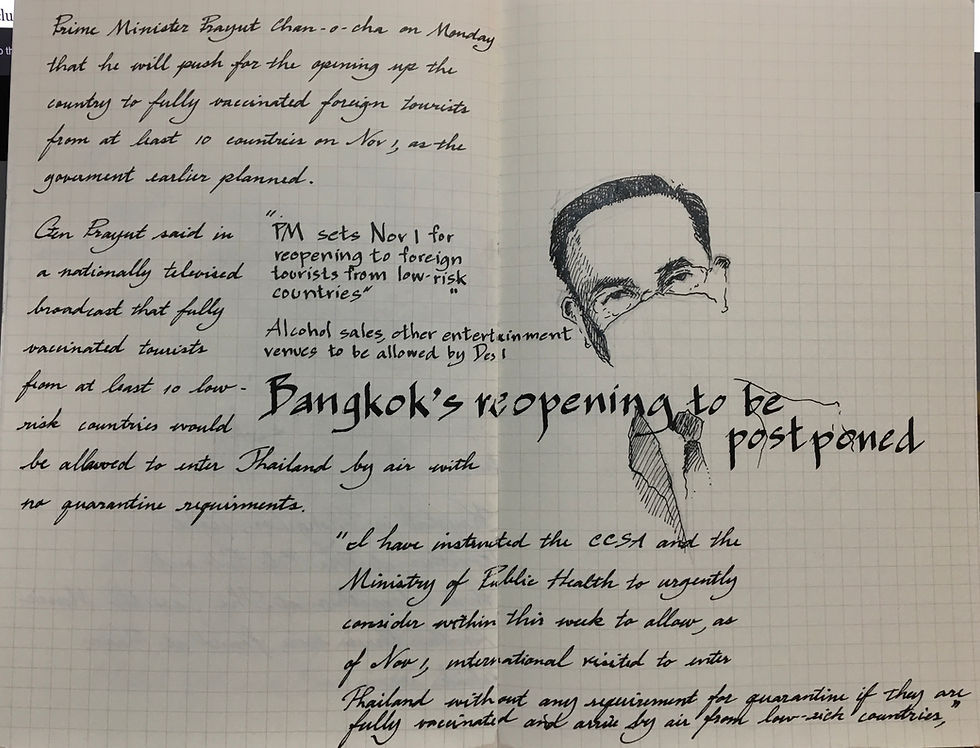 Prime Minister Prayut Chan-o-cha on Monday
that he will push for the opening up the
country to fully vaccinated foreign tourists
from at least 10 countries on Nov 1, as the
goverment earlier planned.
Gen Prayut said in
a nationally televised
broadcast that fully
vaccinated tourists
from at least 10 low-
risk countries would
be allowed to enter Thailand by air with
no quarantine requirments.
"PM sets Nov 1 for
reopening to foreign
tourists from low-risk
countries"
Alcohol sales, other entertainment
venues to be allowed by Des 1
Bangkok's reopening to be
postponed
"I have instructed the CCSA and the
Ministry of Public Health to urgently
consider within this week to allow, as
of Nov 1, international visited to enter
Thailand without any requirement for quarantine if they are
fully vaccinated and arrive by air from low-sick countries,"